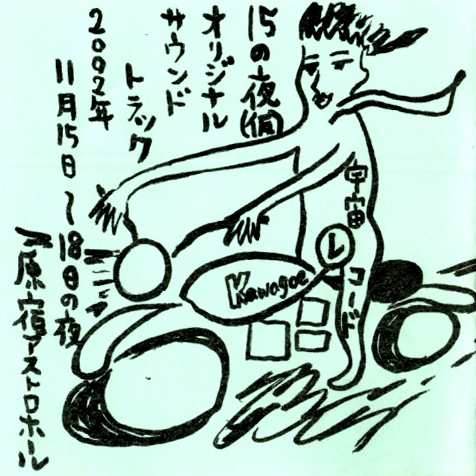 15の夜(仮)
オリジナル
サウンド
トラック
2002年
11月15日〜18日の夜
原宿アストロホール
宇宙
レ
コード
Kawagoe